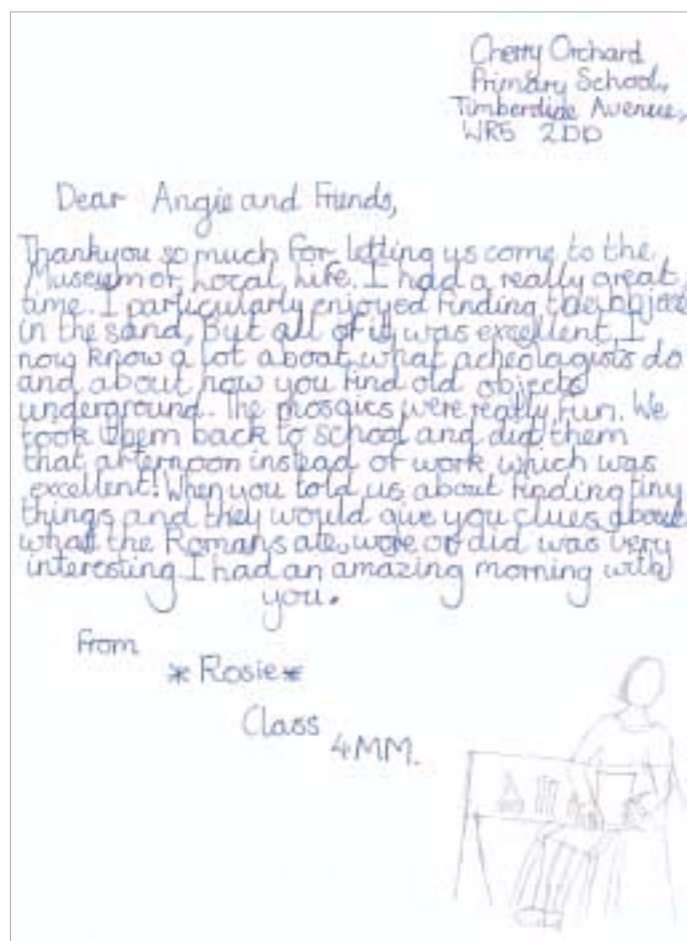 Cherry Orchard
Primary School,
Timberdine Avenue,
WR5 2DD
Dear Angie and Friends,
Thankyou so much for letting us come to the
Museum of Local Life. I had a really great
time. I particularly enjoyed finding the object
in the sand, But all of it was excellent, I
now know a lot about what acheolagists do
and about how you find old objects
underground. The mosaics were really fun. We
took them back to school and did them
that afternoon instead of work which was
excellent! When you told us about finding tiny
things and they would give you clues about
what the Romans ate, wore or did was very
interesting I had an amazing morning with
you.
From
*Rosie*
Class
4MM.